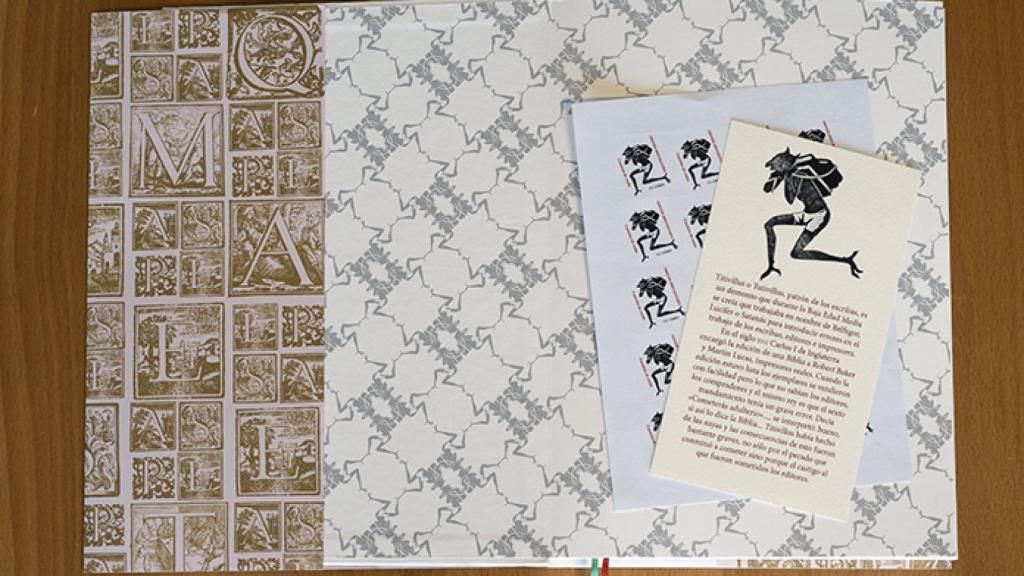 Q
M A P I
S A
A S
P I
M
A
L
E
T
A S
Titivillus o Tutivillus, patrón de los escribas, es
un demonio que durante la Baja Edad Media
se creía que trabajaba en nombre de Belfegor,
Lucifer o Satanás para introducir errores en el
trabajo de los escribas, editores e impresores.
En el siglo XVII Carlos I de Inglaterra
encargó la edición de una Biblia a Robert Baker
y Martin Lucas, impresores reales. Cuando la
edición estuvo lista los ejemplares se vendieron
con facilidad pero lo que no sabían los editores,
los compradores y el mismo rey es que el sexto
mandamiento tenía un grave error. Decía
«Cometerás adulterio»... se interpretó bueno,
si así lo dice la Biblia... Titivillus había hecho
de las suyas y las consecuencias de esto fueron
bastante graves, no sólo por el pecado que
conminó a cometer sino porque el castigo al
que fueron sometidos los editores.